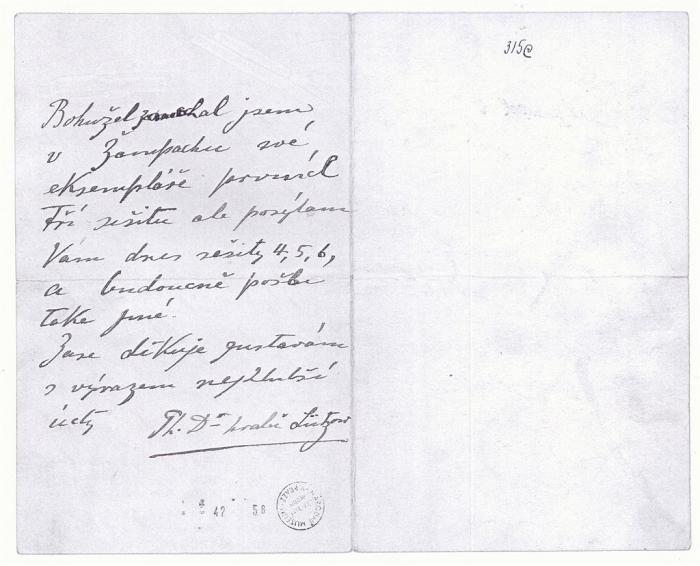 315
Bohužel zanechal jsem
v Žampachu své
eksempláře prvních
tří sešitu ale posýlam
Vám dnes sešity 4, 5, 6,
a budoucně pošlu
take jiné.
Zase děkuje zustavám
s výrazem nejhlubší
úcty Ph. Dr hrabě Lützow
42 58